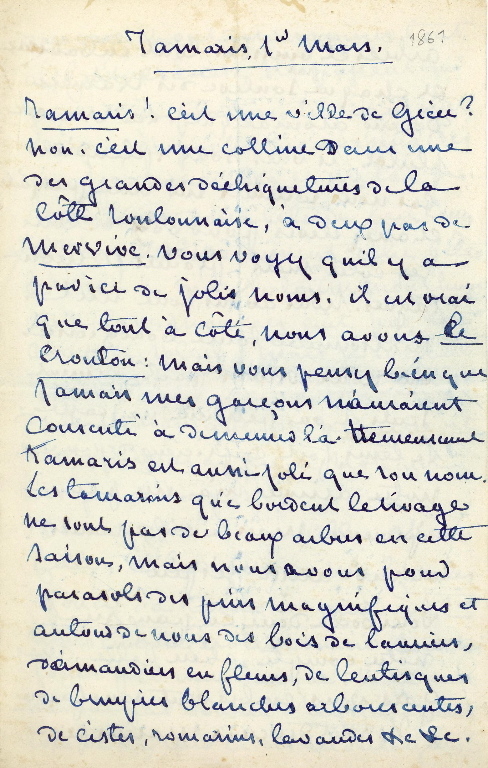 Tamaris, 1er Mars. 1861
Tamaris! c'est une ville de Grèce?
non. c'est une colline dans une
des grandes déchiquetures de la
Côte toulonnaise, à deux pas de
Mervive. Vous voyez qu'il y a
par ici de jolis noms. il est vrai
que tout à côté, nous avons le
Crouton: mais vous pensez bien que
jamais mes garçons n'auraient
consenti à demeurer là. Heureusement
Tamaris est aussi joli que son nom.
Les tamarins qui bordent le rivage
ne sont pas de beaux arbres en cette
saison, mais nous avons pour
parasols des pins magnifiques et
autour de nous des bois de lauriers,
d'amandiers en fleurs, de lentisques
de bruyères blanches arborescentes,
de cistes, romarins, lavandes &c &c.